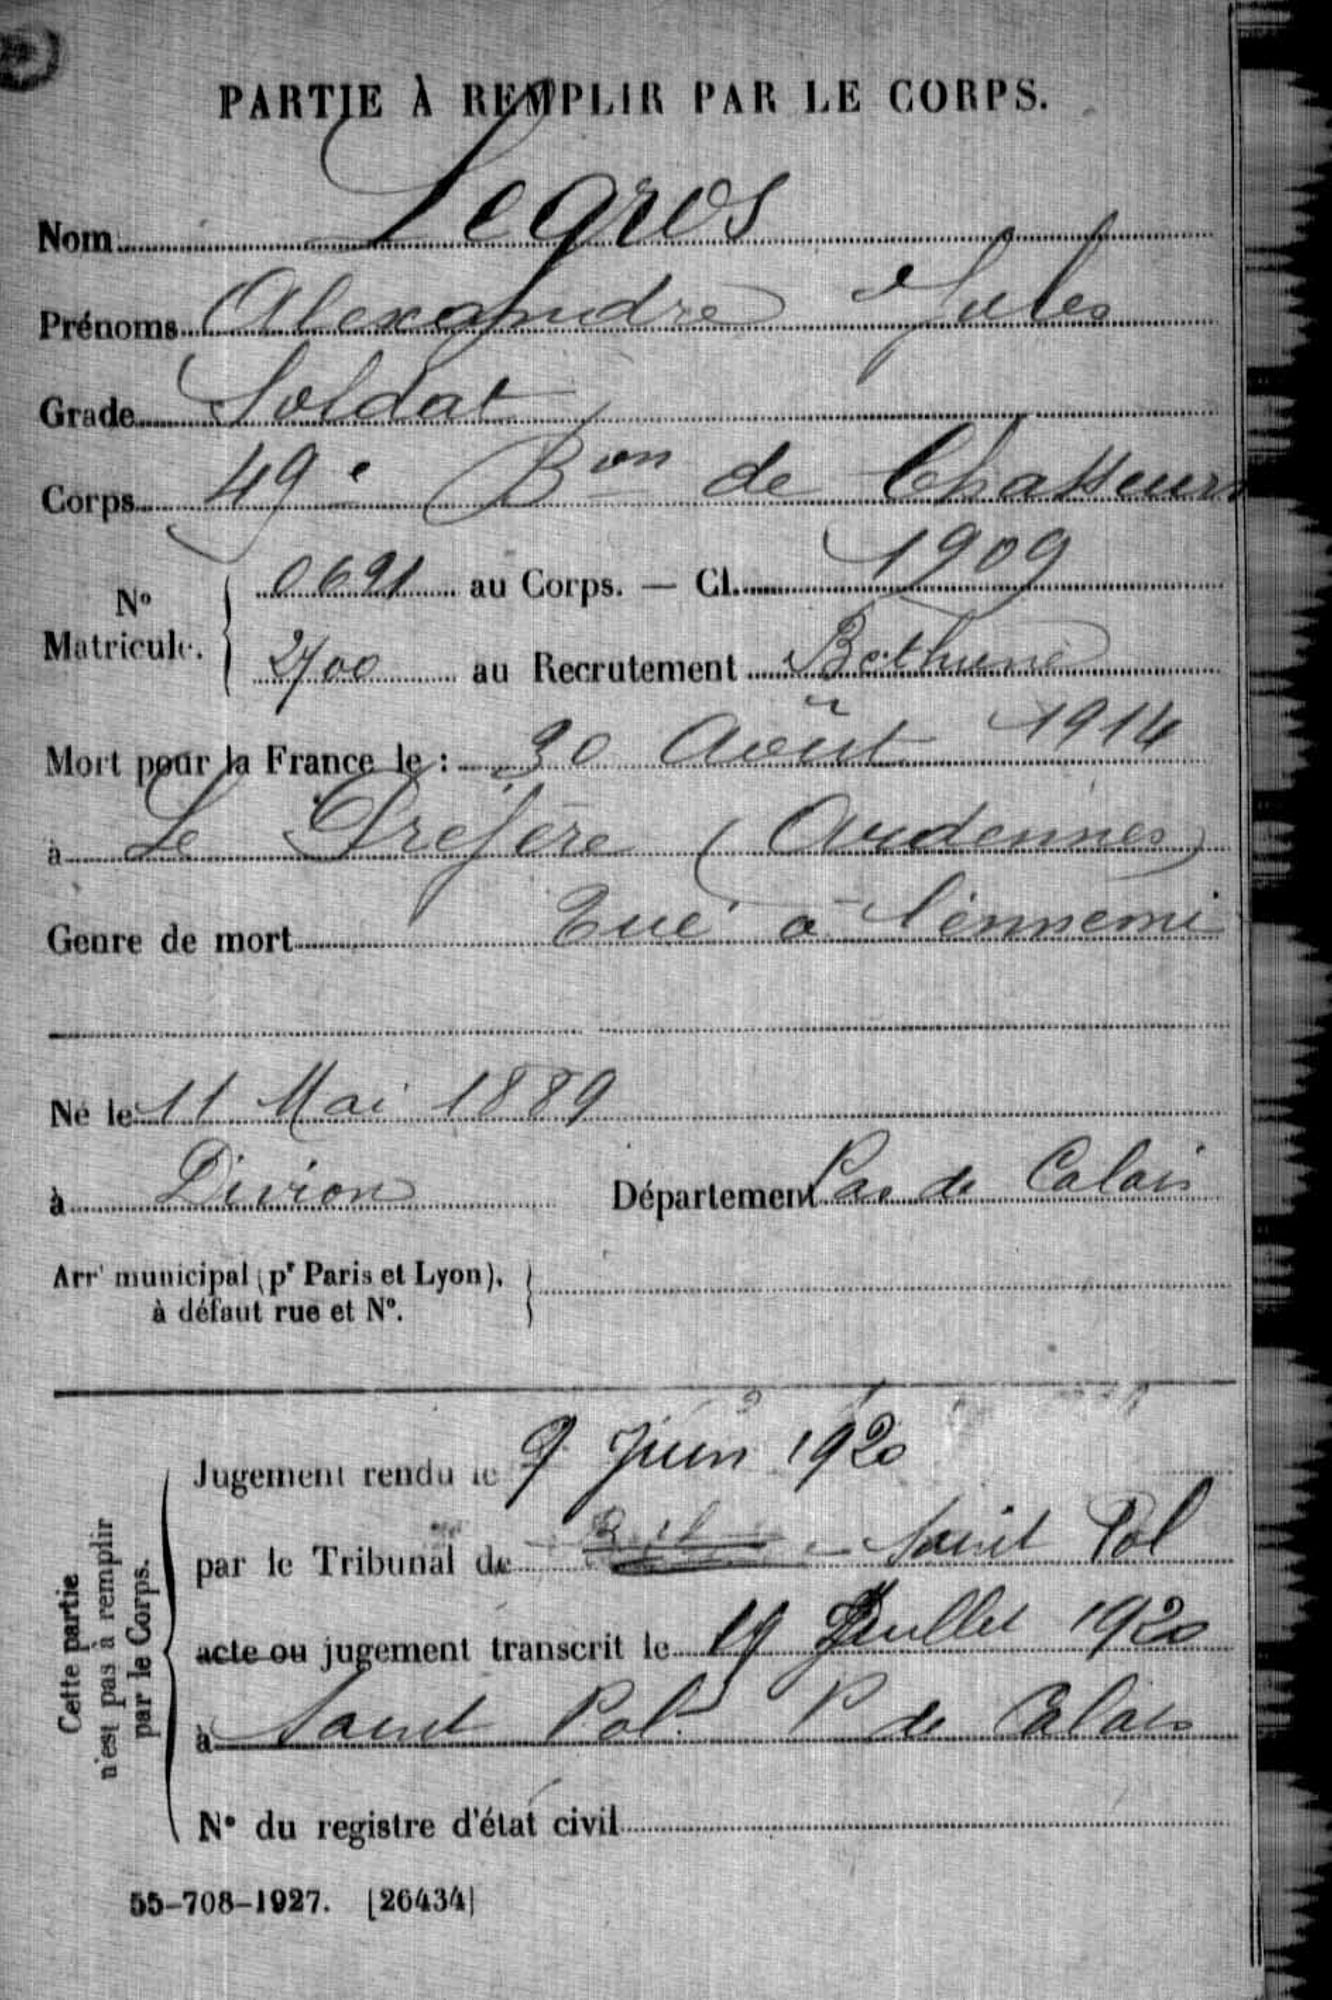 PARTIE À REMPLIR PAR LE CORPS.
Nom Legros
Prénoms Alexandre Jules
Grade Soldat
Corps 49e Bon de Chasseurs
No Matricule. { 0691 au Corps. — Cl. 1909
2700 au Recrutement Béthune
Mort pour la France le : 30 Août 1914
à Le Préfère (Ardennes)
Genre de mort Tué à l'ennemi
Né le 11 Mai 1889
à Divion Département Pas de Calais
Arrt municipal (pr Paris et Lyon), à défaut rue et No. }
Cette partie n'est pas à remplir par le Corps.
Jugement rendu le 9 Juin 1920
par le Tribunal de Saint Pol
acte ou jugement transcrit le 19 Juillet 1920
à Saint Pol P de Calais
No du registre d'état civil
55-708-1927. [26434]